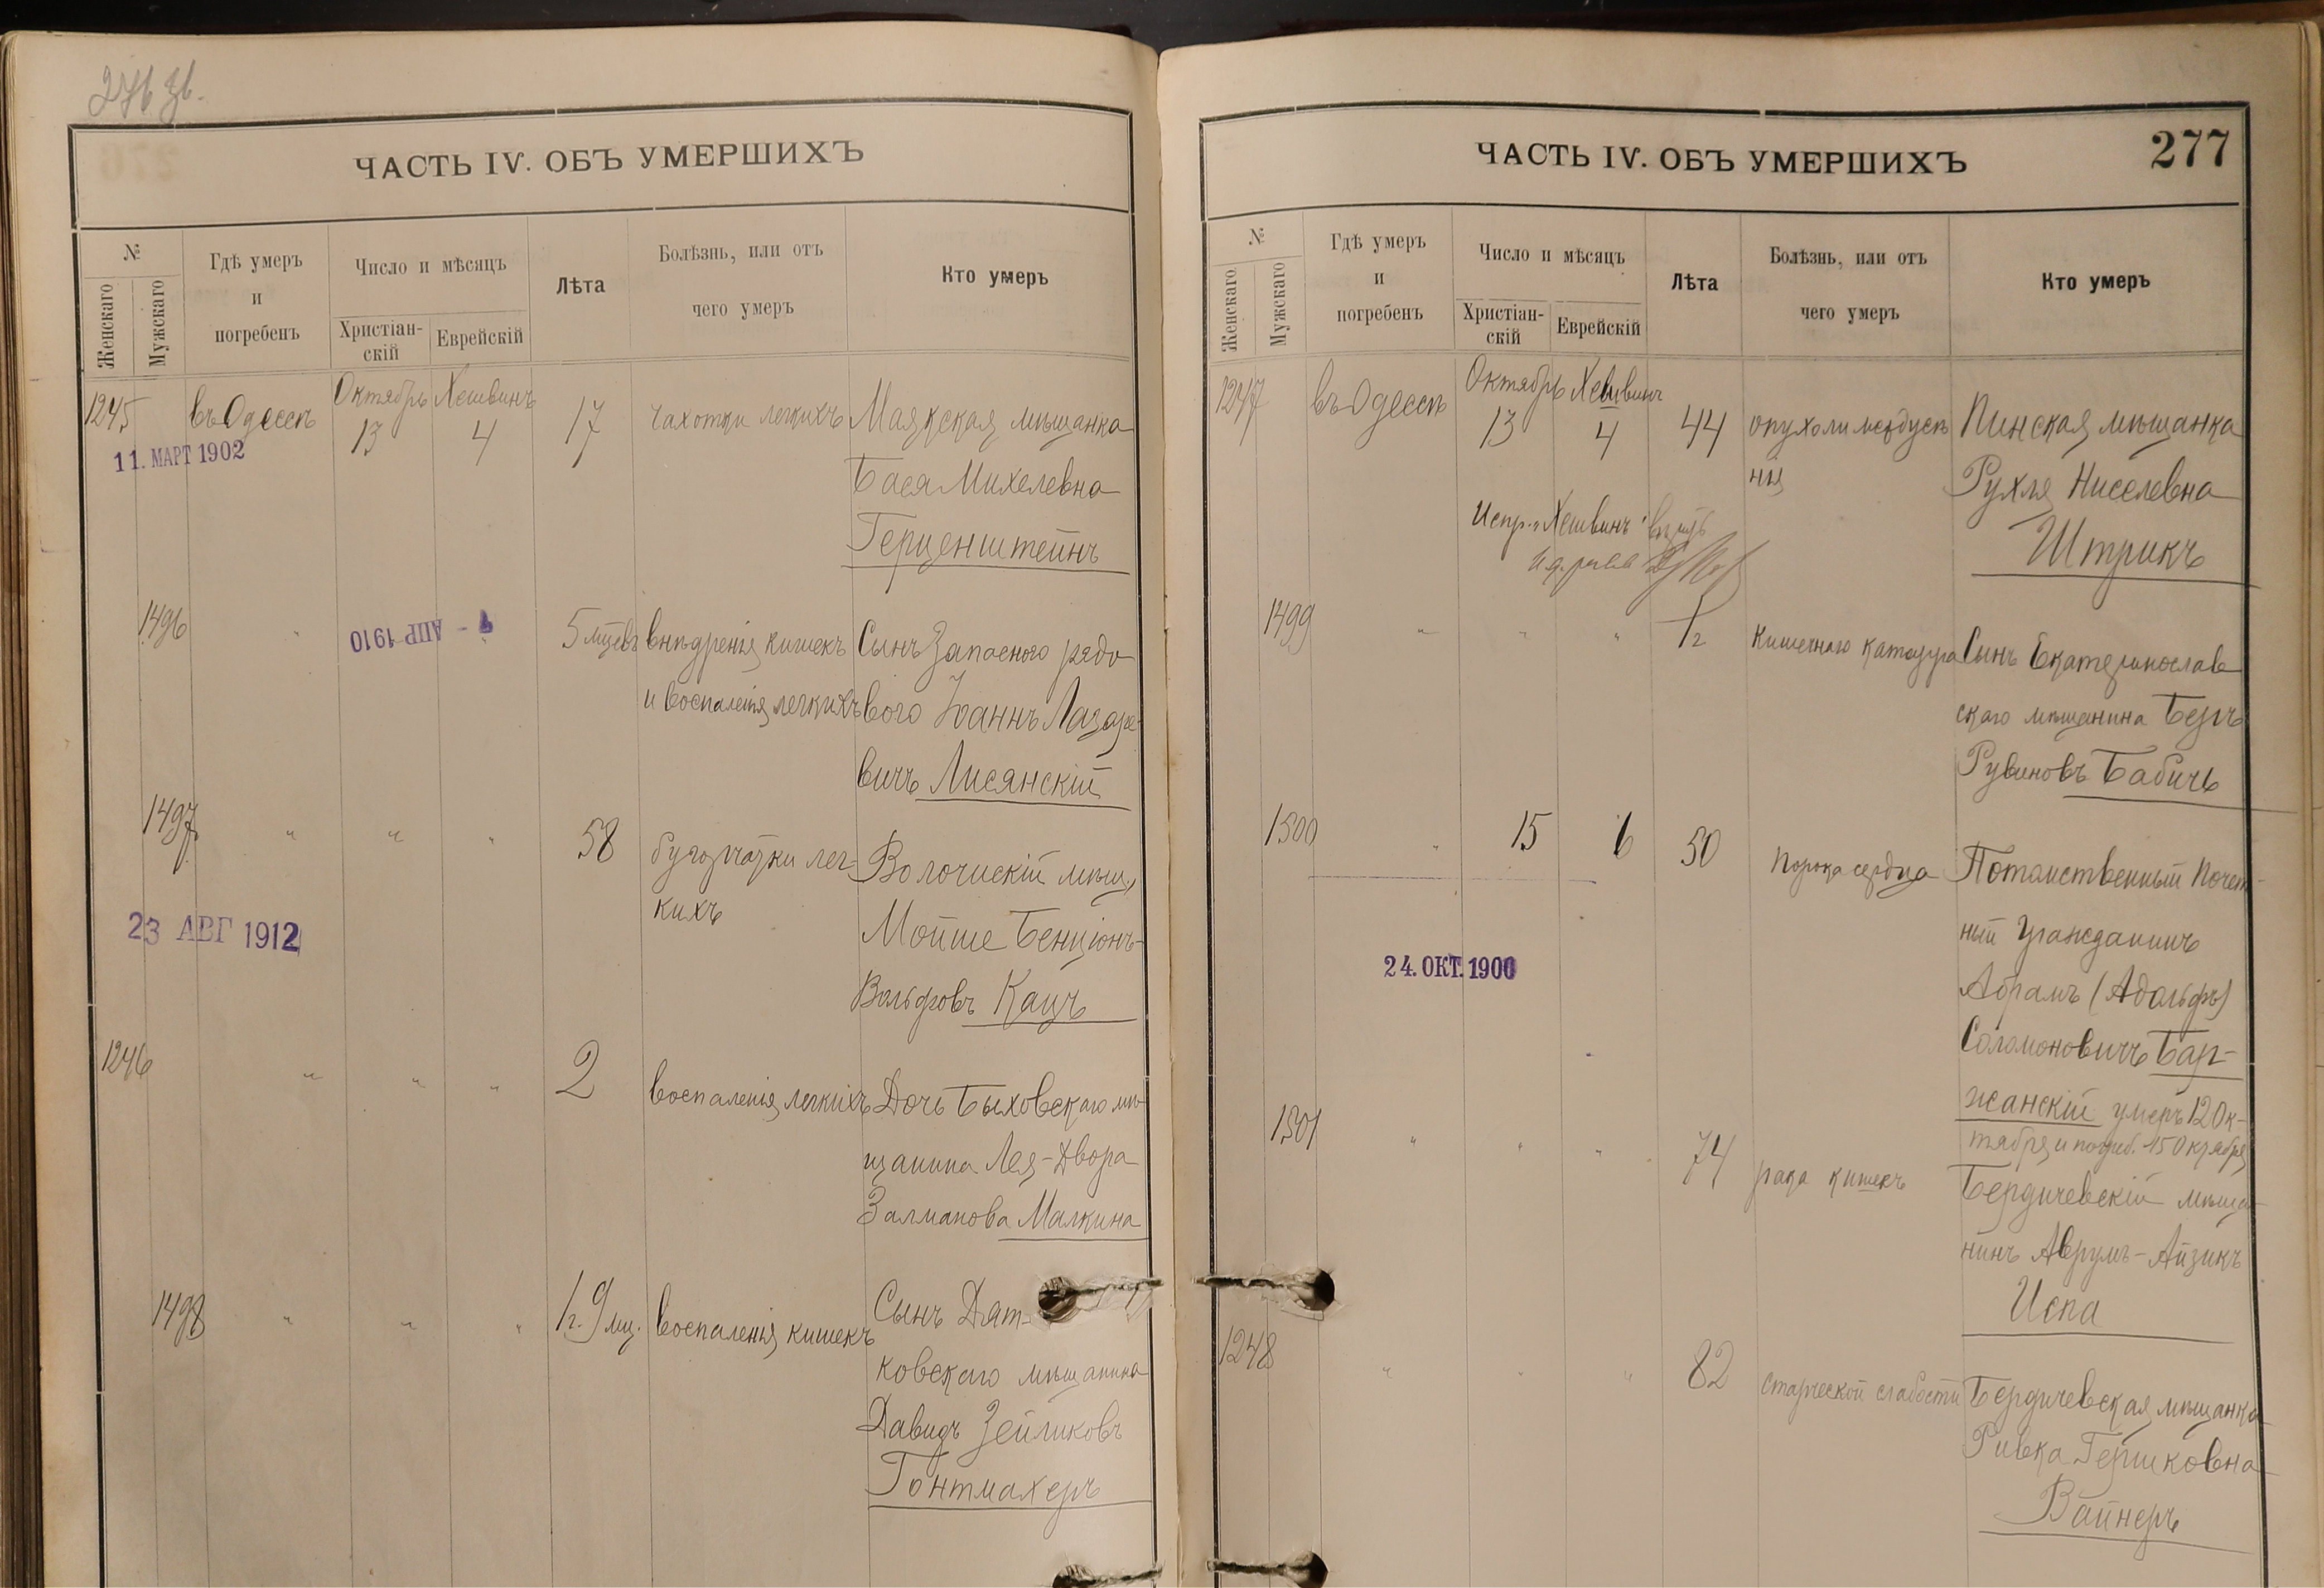 276 зв.
ЧАСТЬ IV. ОБЪ УМЕРШИХЪ
№
Женскаго
Мужскаго
Гдѣ умеръ
и
погребенъ
Число и мѣсяцъ
Христіан-
скій
Еврейскій
Лѣта
Болѣзнь, или отъ
чего умеръ
Кто умеръ
1245 въ Одессѣ Октябрь 13 Хешвинъ 4 17 чахотки легкихъ Маякская мѣщанка
11. МАРТ 1902
Бася Михелевна
Герценштейнъ
1496 " АПР 1910 " 5 мцевъ внѣдренія кишекъ Сынъ Запасного рядо
и воспаленія легкихъ вого Іоаннъ Лазаре-
вичъ Лисянскій
1497 " " " 58 бугорчатки лег- Волочискій мѣщ.
кихъ Мойше Бенціонъ-
23 АВГ 1912
Вольфовъ Кацъ
1246 " " " 2 воспаленія легкихъ Дочь Быховскаго мѣ-
щанина Лея-Двора
Залманова Малкина
1498 " " " 1 г. 9 мц. воспаленія кишекъ Сынъ Дят-
ковскаго мѣщанина
Давидъ Зейликовъ
Гонтмахеръ
ЧАСТЬ IV. ОБЪ УМЕРШИХЪ
277
№
Женскаго
Мужскаго
Гдѣ умеръ
и
погребенъ
Число и мѣсяцъ
Христіан-
скій
Еврейскій
Лѣта
Болѣзнь, или отъ
чего умеръ
Кто умеръ
1247 въ Одессѣ Октябрь 13 Хешвинъ 4 44 опухоли Пинская мѣщанка
Рухля Ниселевна
Испр. "Хешвинъ"
Штрикъ
1499 " " " 1 г кишечнаго катарра Сынъ Екатеринослав
скаго мѣщанина Беръ
Рувиновъ Бабичъ
1500 " 15 6 50 порока сердца Потомственный Почет-
ный Гражданинъ
24. ОКТ. 1900
Абрамъ (Адольфъ)
Соломоновичъ Бар-
жанскій умеръ 12 Ок-
тября и погреб. 15 Октября
1501 " " " 74 рака кишекъ Бердичевскій мѣща-
нинъ Аврумъ-Айзикъ
Испа
1248 " " " 82 старческой слабости Бердичевская мѣщанка
Ривка Гершковна
Вайнеръ